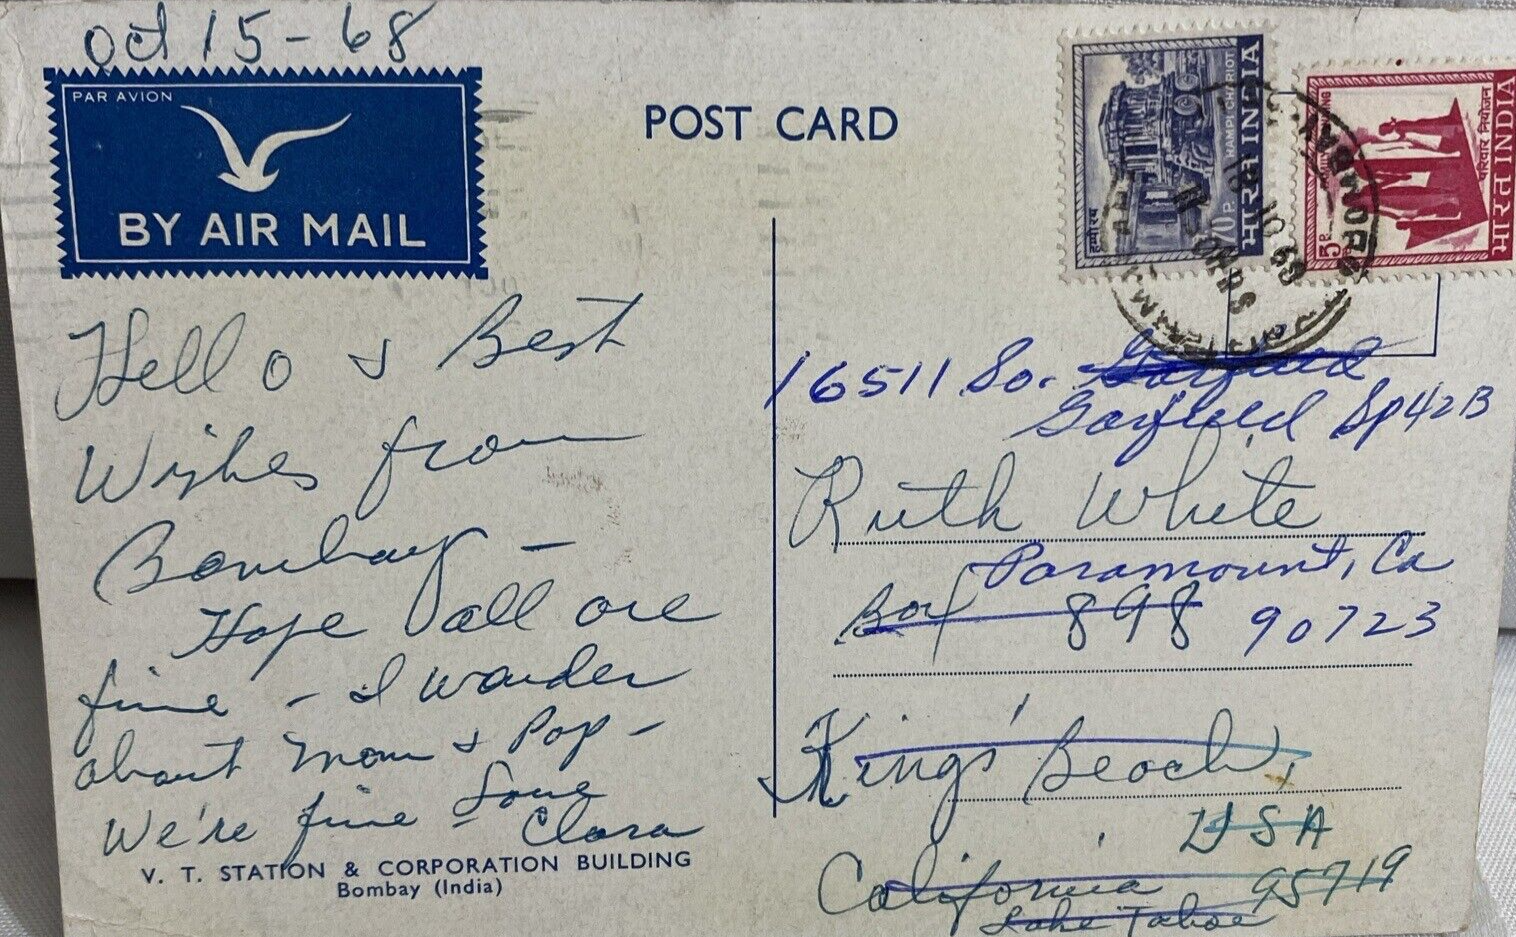 Oct 15 - 68
PAR AVION
BY AIR MAIL
POST CARD
हम्पी रथ
70 P
HAMPI CHARIOT
भारत INDIA
5 P
परिवार नियोजन
भारत INDIA
BOMBAY
Hello & Best
Wishes from
Bombay -
Hope all are
fine - I wonder
about Mom & Pop -
We're fine - Love
Clara
V. T. STATION & CORPORATION BUILDING
Bombay (India)
16511 So. Garfield
Garfield Sp 42B
Ruth White
Paramount, Ca
Box 898 90723
King's Beach,
USA
California 95719
Lake Tahoe